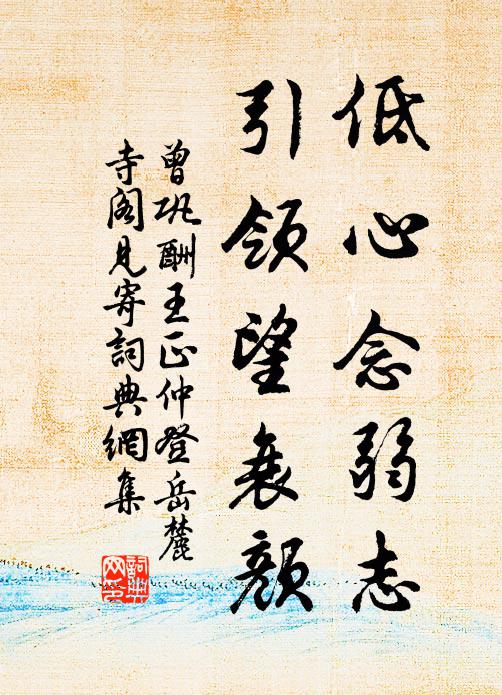 低心念弱志
引领望衰颜
曾巩酬王正仲登岳麓
寺阁见寄词典網集